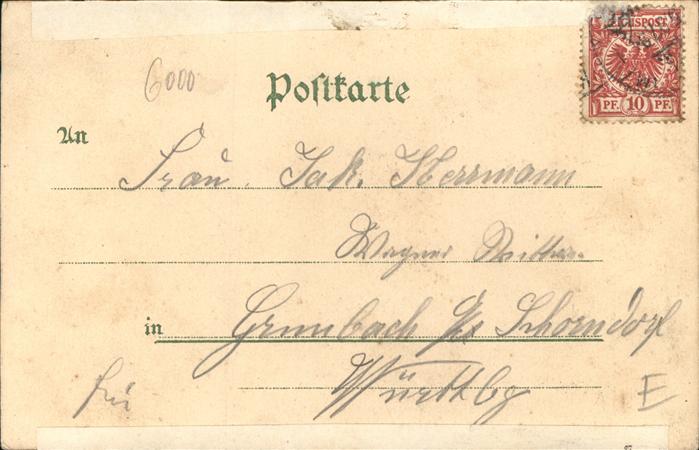 6000
Postkarte
REICHSPOST
PF. 10 PF.
An
Frau Jak. Herrmann
Wagner
in Grunbach Schorndorf
Württbg
E